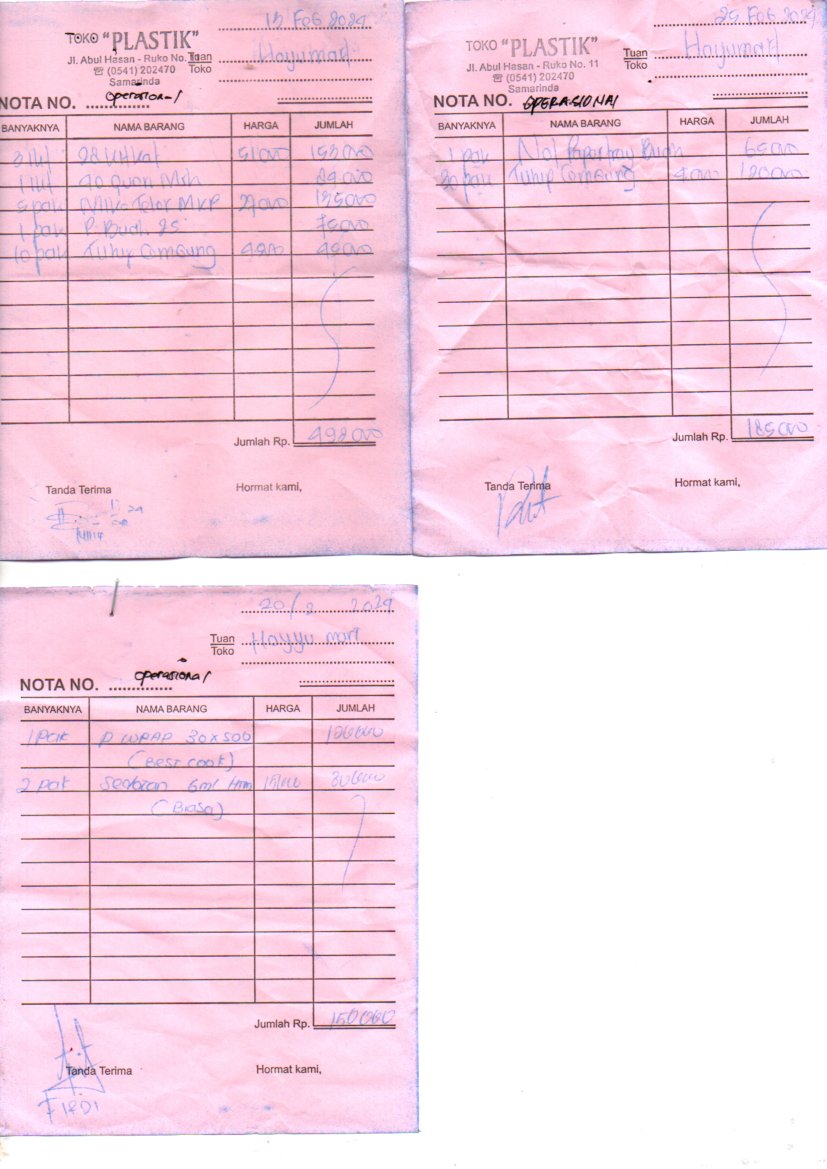 13 Feb 2024
TOKO "PLASTIK"
Jl. Abul Hasan - Ruko No. 11
☎ (0541) 202470
Samarinda
Tuan Hayumart
Toko
NOTA NO. operasional
BANYAKNYA NAMA BARANG HARGA JUMLAH
3 51.000 153.000
1
5 pak 27.000 135.000
1 pak P. Buah 25 75.000
10 pak
Jumlah Rp. 498.000
Tanda Terima Hormat kami,
Feb 2024
TOKO "PLASTIK"
Jl. Abul Hasan - Ruko No. 11
☎ (0541) 202470
Samarinda
Tuan Hayumart
Toko
NOTA NO. OPERASIONAL
BANYAKNYA NAMA BARANG HARGA JUMLAH
1 pak Buah 65.000
30 pak 4.000 120.000
Jumlah Rp. 185.000
Tanda Terima Hormat kami,
20/2 2024
Tuan Hayyu mart
Toko
NOTA NO. operasional
BANYAKNYA NAMA BARANG HARGA JUMLAH
1 pak P WRAP 30x500 120.000
(Best cook)
2 pak 6ml Htm 15.000 30.000
(Biasa)
Jumlah Rp. 150.000
Tanda Terima Hormat kami,
FIRDI